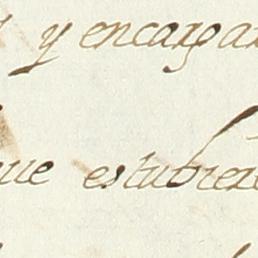 y encargar
que estubiere